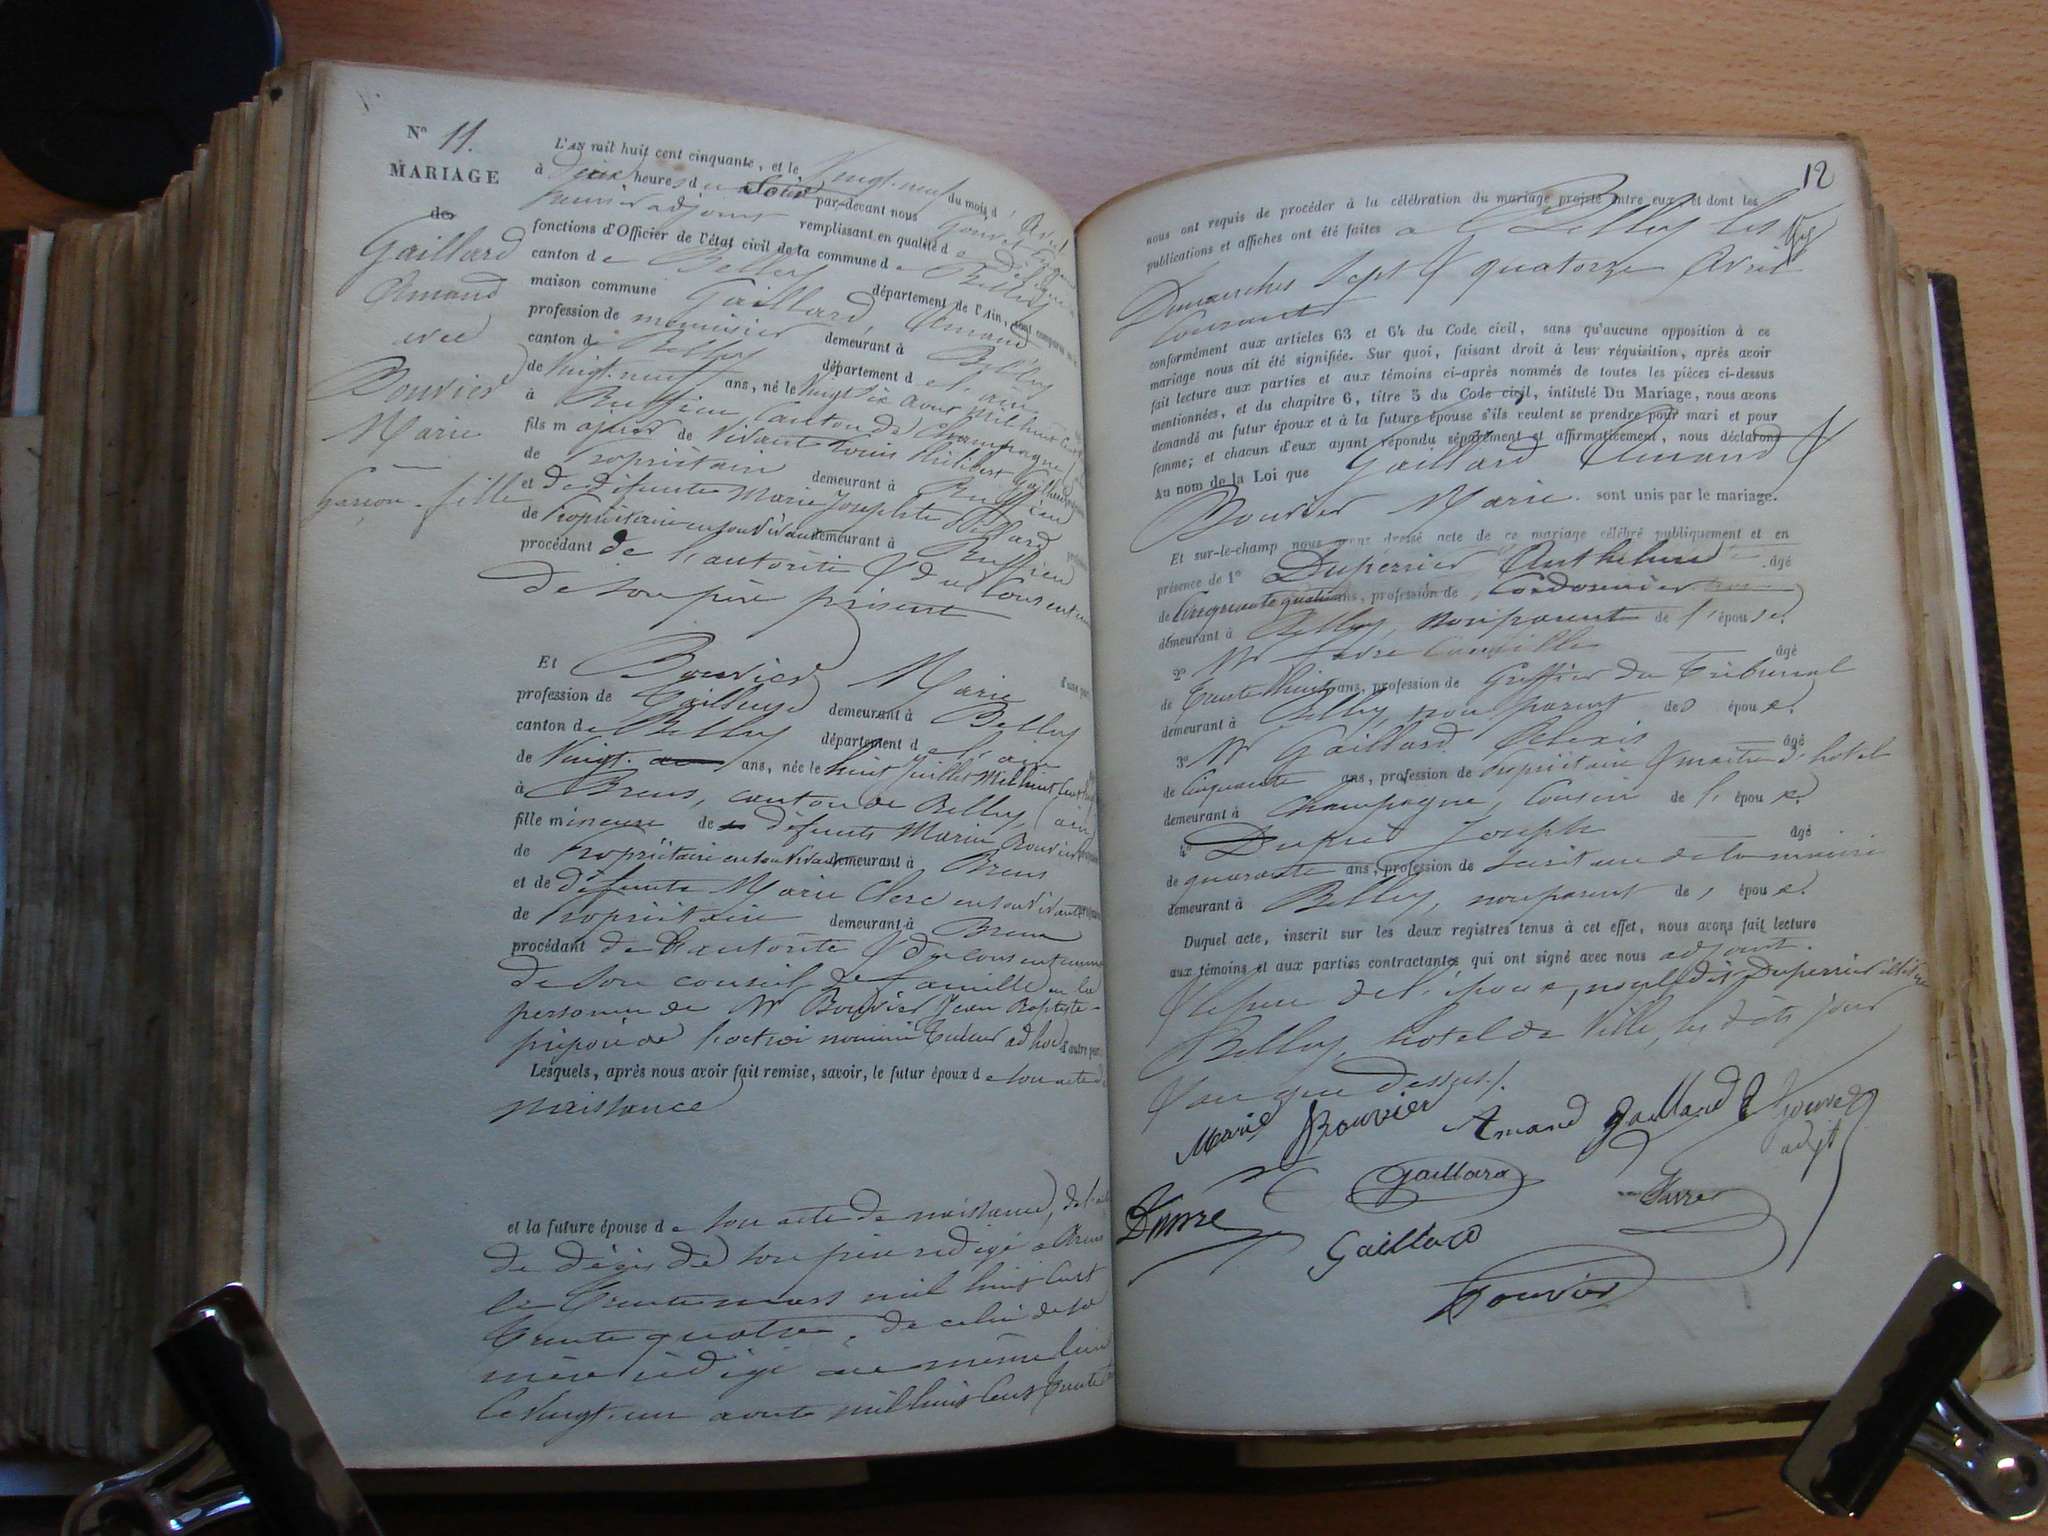 N° 11.
MARIAGE
de
Gaillard
Amand
avec
Bouvier
Marie
Garçon - fille
L'AN mil huit cent cinquante, et le Vingt-neuf du mois d' Avril
à dix heures du par-devant nous Gouvet
premier adjoint remplissant en qualité de délégué
fonctions d'Officier de l'état civil de la commune de Belley
canton de Belley département de l'Ain, sont comparus en
maison commune Gaillard Amand
profession de menuisier demeurant à Belley
canton de Belley département de l'ain
de Vingt-neuf ans, né le Vingt six Aout mil huit Cent
à Ruffieu, Canton de Champagne
fils majeur de Vivant Louis Philibert Gaillard
de Propriétaire demeurant à Ruffieu
et de défunte Marie Josephte Billard
de Propriétaire en son vivant demeurant à Ruffieu
procédant de l'autorité & du Consentement
de son père présent
d'une part
Et Bouvier Marie
profession de Tailleuse demeurant à Belley
canton de Belley département de l'ain
de Vingt ans, née le huit Juillet Mil huit Cent
à Brens, canton de Belley, (ain)
fille mineure de défunts Marin Bouvier
de Propriétaire en son vivant demeurant à Brens
et de défunte Marie Clerc en son vivant
de Propriétaire demeurant à Brens
procédant de l'autorité & du consentement
de son conseil de famille en la
personne de Mr Bouvier Jean Baptiste
préposé de l'octroi nommé Tuteur ad hoc d'autre part
Lesquels, après nous avoir fait remise, savoir, le futur époux de son acte de
naissance
et la future épouse de son acte de naissance, de l'acte
de décès de son père rédigé à Brens
le Trente mars mil huit Cent
Trente quatre, de celui de sa
mère rédigé au même lieu
le Vingt-un aout mil huit Cent Trente
12
nous ont requis de procéder à la célébration du mariage projeté entre eux, et dont les
publications et affiches ont été faites à Belley les
Dimanches Sept & quatorze Avril
Courant
conformément aux articles 63 et 64 du Code civil, sans qu'aucune opposition à ce
mariage nous ait été signifiée. Sur quoi, faisant droit à leur réquisition, après avoir
fait lecture aux parties et aux témoins ci-après nommés de toutes les pièces ci-dessus
mentionnées, et du chapitre 6, titre 5 du Code civil, intitulé Du Mariage, nous avons
demandé au futur époux et à la future épouse s'ils veulent se prendre pour mari et pour
femme; et chacun d'eux ayant répondu séparément et affirmativement, nous déclarons
Au nom de la Loi que Gaillard Amand &
Bouvier Marie sont unis par le mariage.
Et sur-le-champ nous avons dressé acte de ce mariage célébré publiquement et en
présence de 1° Duperrier Anthelme âgé
de Cinquante quatre ans, profession de Cordonnier
demeurant à Belley, non parent de l'épouse.
2° Mr Favre Camille âgé
de Trente huit ans, profession de Greffier du Tribunal
demeurant à Belley, non parent des époux.
3° Mr Gaillard Alexis âgé
de Cinquante ans, profession de propriétaire & maître d'hotel
demeurant à Champagne, Cousin de l'époux.
4° Dupuis Joseph âgé
de quarante ans, profession de Secrétaire de la mairie
demeurant à Belley, non parent des époux.
Duquel acte, inscrit sur les deux registres tenus à cet effet, nous avons fait lecture
aux témoins et aux parties contractantes qui ont signé avec nous adjoint.
& le père de l'époux, non ledit Duperrier illitéré
Belley, hotel de Ville, les dits jour
& an que dessus.
Marie Bouvier Amand Gaillard Gouvet
adjt
Gaillard
Favre
Gaillard
Bouvier